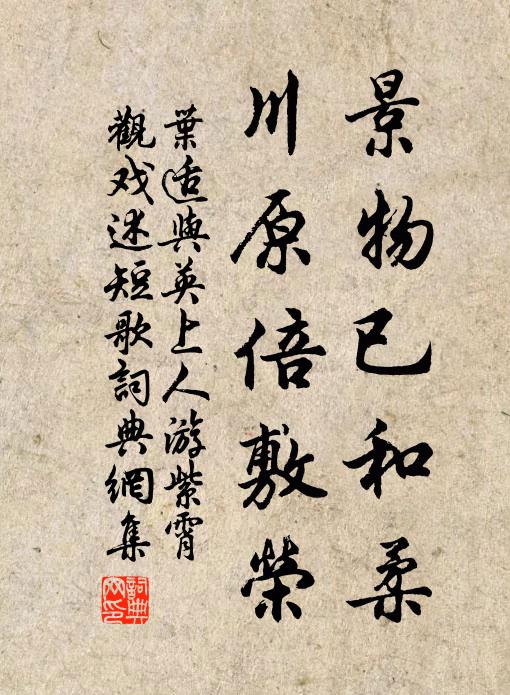 景物已和柔
川原倍敷榮
葉适與英上人游紫霄
觀戏述短歌詞典網集
詞典網印